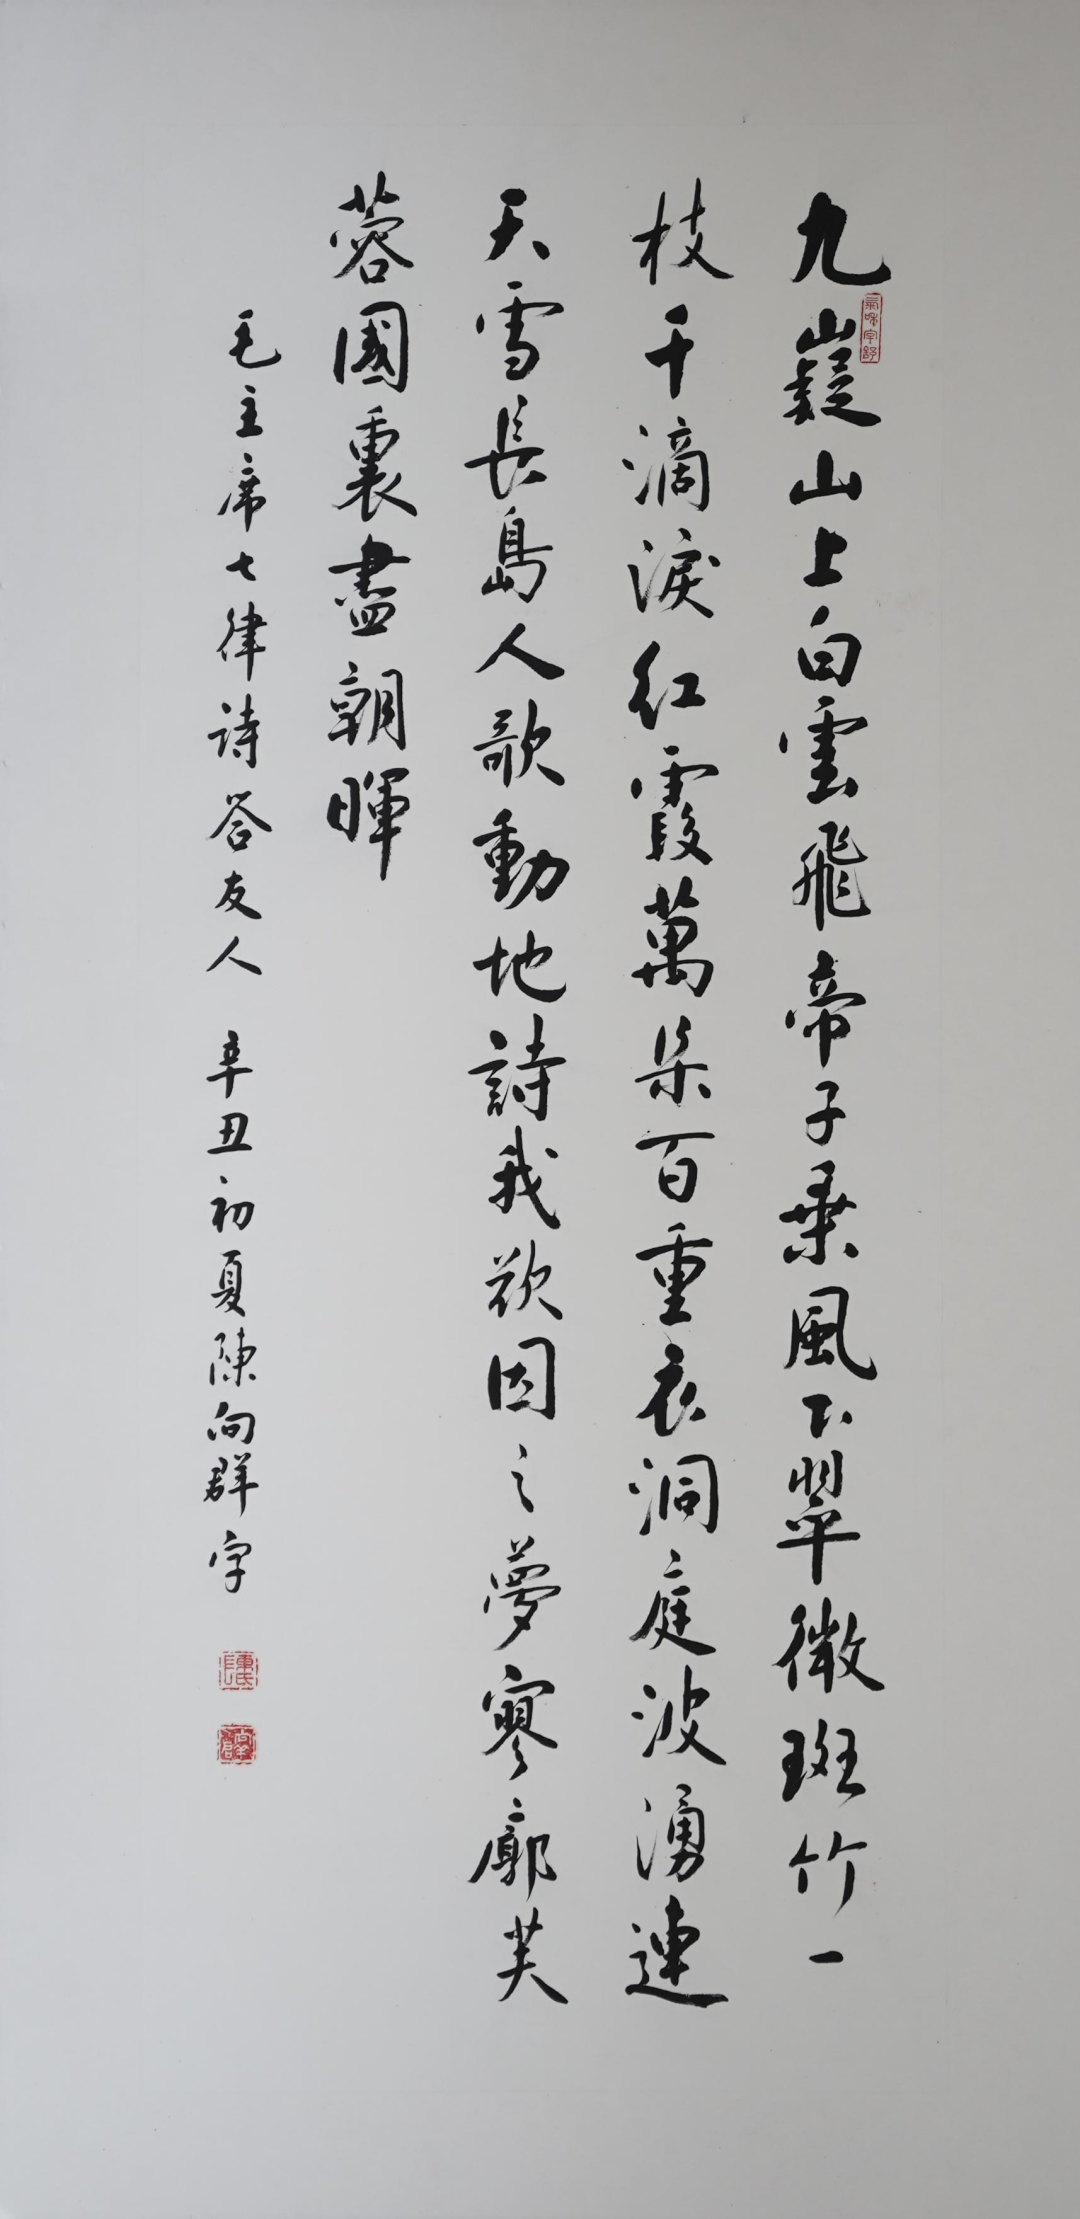 九嶷山上白雲飛帝子乗風下翠微斑竹一
枝千滴淚紅霞萬朵百重衣洞庭波湧連
天雪長島人歌動地詩我欲因之夢寥廓芙
蓉國裏盡朝暉
毛主席七律詩答友人 辛丑初夏陳向群字